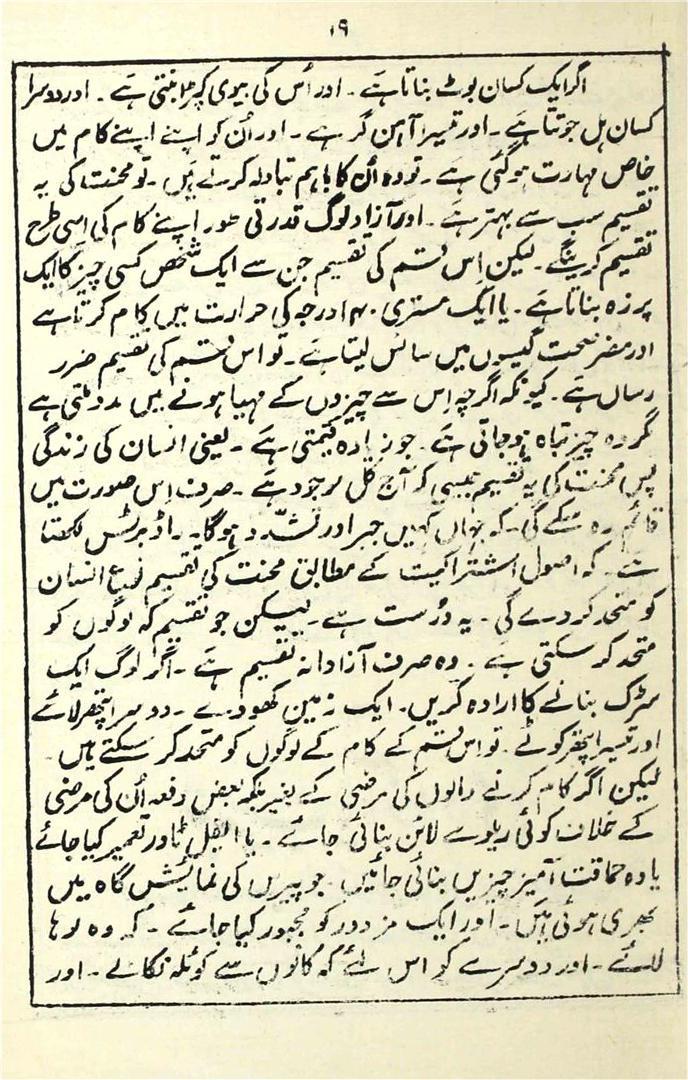 ۱۹
اگر ایک کسان بوٹ بناتا ہے ۔ اور اُس کی بیوی کپڑا بنتی ہے ۔ اور دوسرا
کسان ہل جوتتا ہے ۔ اور تیسرا آہن گر ہے ۔ اور اُن کو اپنے اپنے کام میں
خاص مہارت ہوگئی ہے ۔ تو وہ اُن کا باہم تبادلہ کرتے ہیں ۔ تو محنت کی یہ
تقسیم سب سے بہتر ہے ۔ اور آزاد لوگ قدرتی طور اپنے کام کی اِسی طرح
تقسیم کرینگے ۔ لیکن اِس قسم کی تقسیم جن سے ایک شخص کسی چیز کا ایک
پرزہ بناتا ہے ۔ یا ایک مستری ۱۴۰ درجہ کی حرارت میں کام کرتا ہے
اور مضر صحت گیسوں میں سانس لیتا ہے ۔ تو اس قسم کی تقیم ضرر
رساں ہے ۔ کیونکہ اگرچہ اِس سے چیزوں کے مہیا ہونے میں مدد ملتی ہے
مگر وہ چیز تباہ ہوجاتی ہے ۔ جو زیادہ قیمتی ہے ۔ یعنی انسان کی زندگی
پس محنت کی یہ تقسیم جیسی کہ آج کل موجود ہے ۔ صرف اِس صورت میں
قائم رہ سکے گی ۔ کہ جہاں کہیں جبر اور تشدّد ہوگا ۔ اڈبرٹس لکھتا
ہے ۔ کہ اصول اشتراکیت کے مطابق محنت کی تقسیم نوع انسان
کو متحد کر دے گی ۔ یہ درُست ہے ۔ لیکن جو تقسیم کہ لوگوں کو
متحد کر سکتی ہے ۔ وہ صرف آزادانہ تقسیم ہے ۔ اگر لوگ ایک
سڑک بنانے کا ارادہ کریں ۔ ایک زمین کھودے ۔ دوسرا پتھر لائے
اور تیسرا پتھر کوٹے ۔ تو اس قسم کے کام کے لوگوں کو متحد کر سکتے ہیں ۔
لیکن اگر کام کرنے والوں کی مرضی کے بغیر بلکہ بعض دفعہ اُن کی مرضی
کے خلاف کوئی ریلوے لائن بنائی جائے ۔ یا ایفل ٹاور تعمیر کیا جائے
یا وہ حماقت آمیز چیزیں بنائی جائیں ۔ جو پیرس کی نمائیش گاہ میں
بھری ہوئی ہیں ۔ اور ایک مزدور کو مجبور کیا جائے ۔ کہ وہ لوہا
لائے ۔ اور دوسرے کو اس لئے کہ کانوں سے کوئلہ نکالے ۔ اور